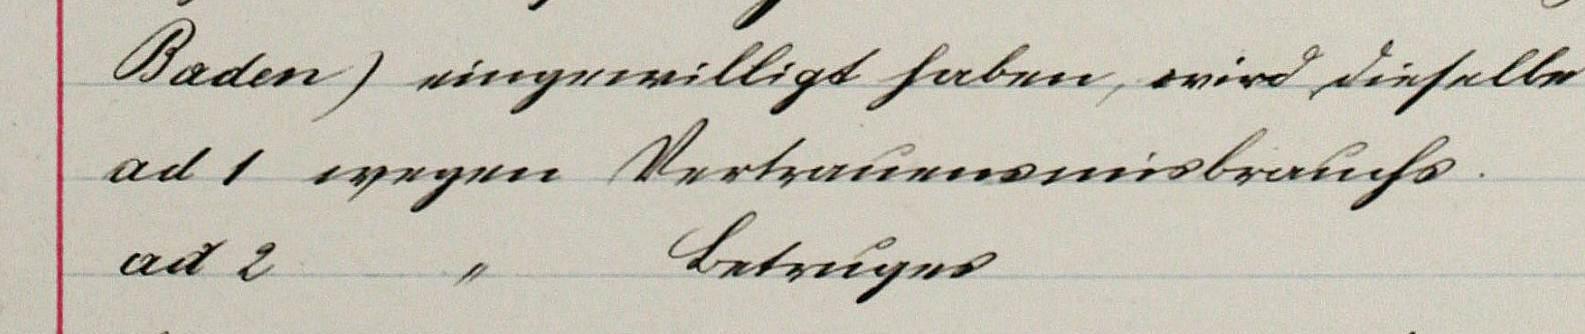 Baden) eingewilligt haben, wird dieselbe
ad 1 wegen Vertrauensmisbrauchs.
ad 2 " Betruges